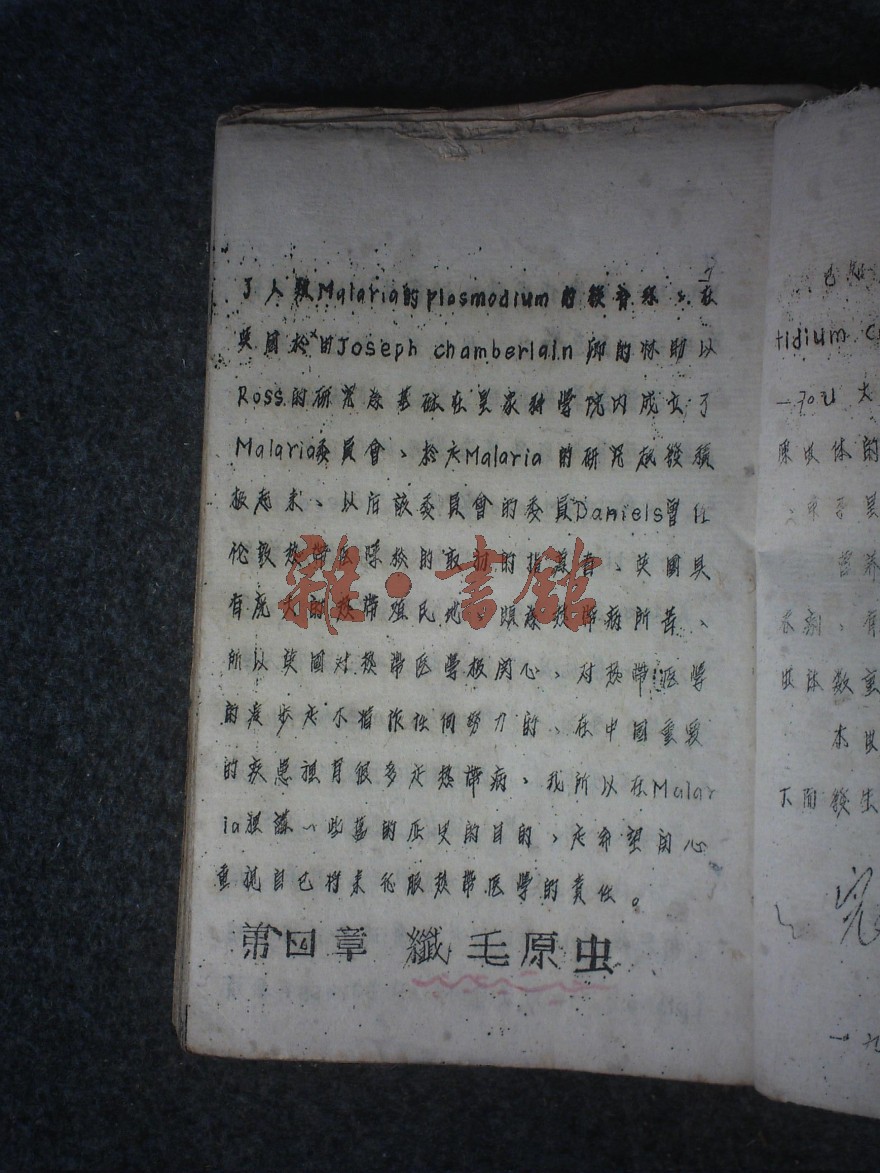 了人類Malaria的plasmodium的發育環。在
英國於由Joseph chamberlain 卿的林助以
Ross的研究為基础在皇家科学院内成立了
Malaria委員會、於是Malaria 的研究就發積
极起来、以后該委員會的委員Daniels曾任
伦敦热帶医学校的最初的指導者、英國具
有庞大的热帶殖民地、頗為热帶病所苦、
所以英國对热帶医学极関心、对热帶医学
的進步是不惜作任何努力的、在中國重要
的疾患裡有很多是热帶病、我所以在Malar
ia裡講一些舊的历史的目的、是希望関心
重視自己将来征服热帶医学的責任。
第四章 纖毛原虫
已知
tidium C
大
原虫体的
营养
虫体数量
本虫
下面發生
雜·書館